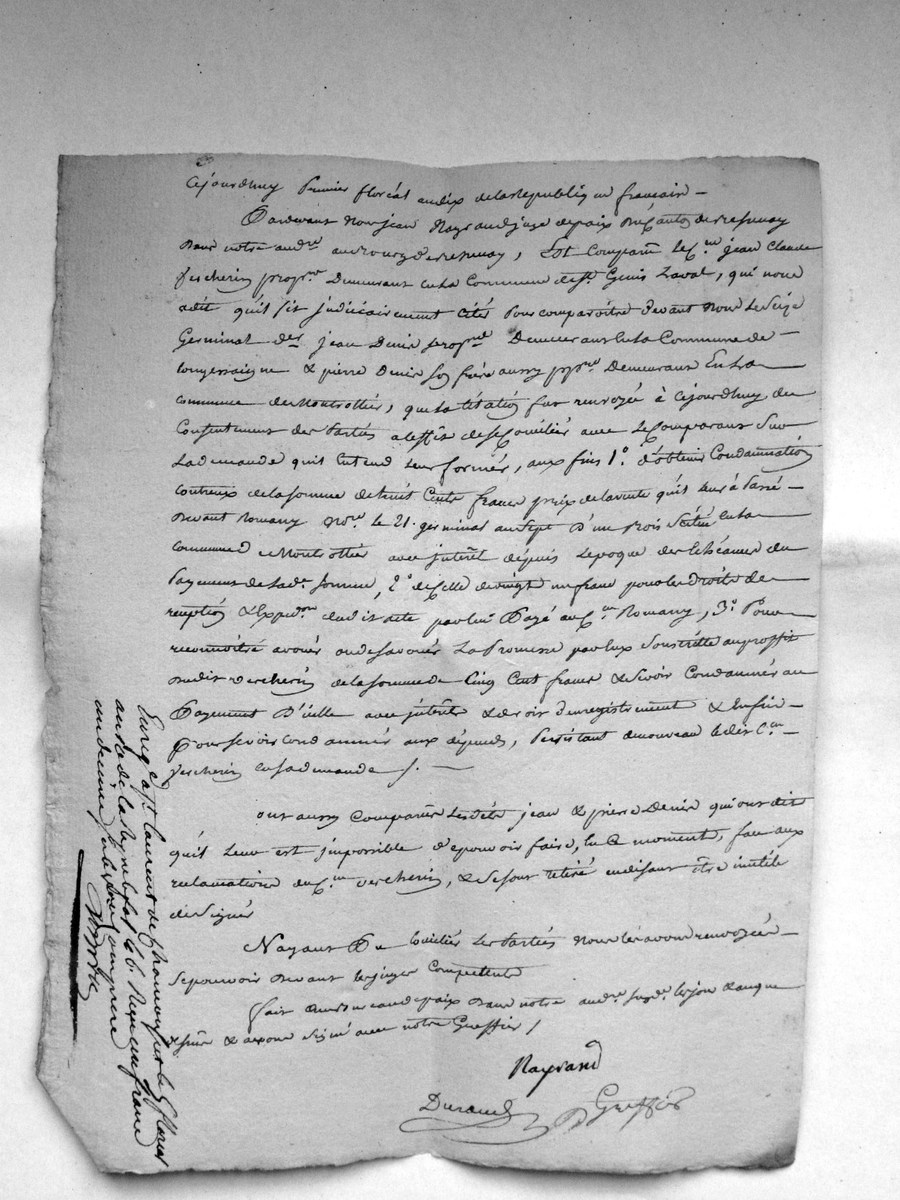 Cejourdhuy premier floréal an dix de la Republique francaise –
Pardevant Nous jean Nayrand juge de paix du Canton de
dans notre aud.re au Bourg de , Est Comparu le C.en jean Claude
Vercherin prop.re Demeurant en la Commune de St. Genis Laval, qui nous
a dit quil fit judiciairement cités pour comparoitre devant Nous le Seize
Germinal d.er jean Denis prop.re Demeurant en la Commune de –
Longessaigne & pierre Denis son frère aussy prop.re Demeurant En la
commune de Montrottier, que la Citation fut renvoyée à Cejourdhuy du
Consentement des Parties a leffet de se Concilier avec le Comparant Sur
la demande quil Entend leur former, aux fins 1.° d'obtenir Condamnation
contreux de la somme de huit Cents francs prix de la vente quil leur à Passé
devant Romany No.re le 21. germinal an Sept D'un Bois Scitué En la
commune de Montrottier avec interêt depuis lepoque des Echéances du
Payement de lad.e Somme, 2.° de Celle de vingt un franc pour le Droits de
reception & Expedi.on dudit acte par lui Payé au C.en Romany, 3.° Pour
reconnoitre avoüér ou desavoüér La Promesse par Eux Souscritte au proffit
dudit vercherin de la somme de Cinq Cent francs & se voir Condamnés au
Payement D'icelle avec interêts & droit denregistrement & Enfin –
Pour se voir condamnés aux dépends, Persistant de nouveau ledit C.en –
Vercherin en sa demande /. —
ont aussy Comparus lesdits jean & pierre Denis qui ont dit
quil Leur est impossible de pouvoir faire, en ce moment, face aux
reclamations du C.en vercherin, & se sont retiré en disant être inutile
de Signer
N'ayant Pu Concilier les Parties Nous les avons renvoyées –
Se pourvoir devant les juges Competents
fait au Bureau de paix dans notre aud.re susd.e les jour & an que
dessus & avons Signé avec notre Greffier /
Nayrand
Durand Greffier
Enreg.é à St. laurent de Chamousset le floréal
an dix de la Rep. fol. 46. Reçu un franc